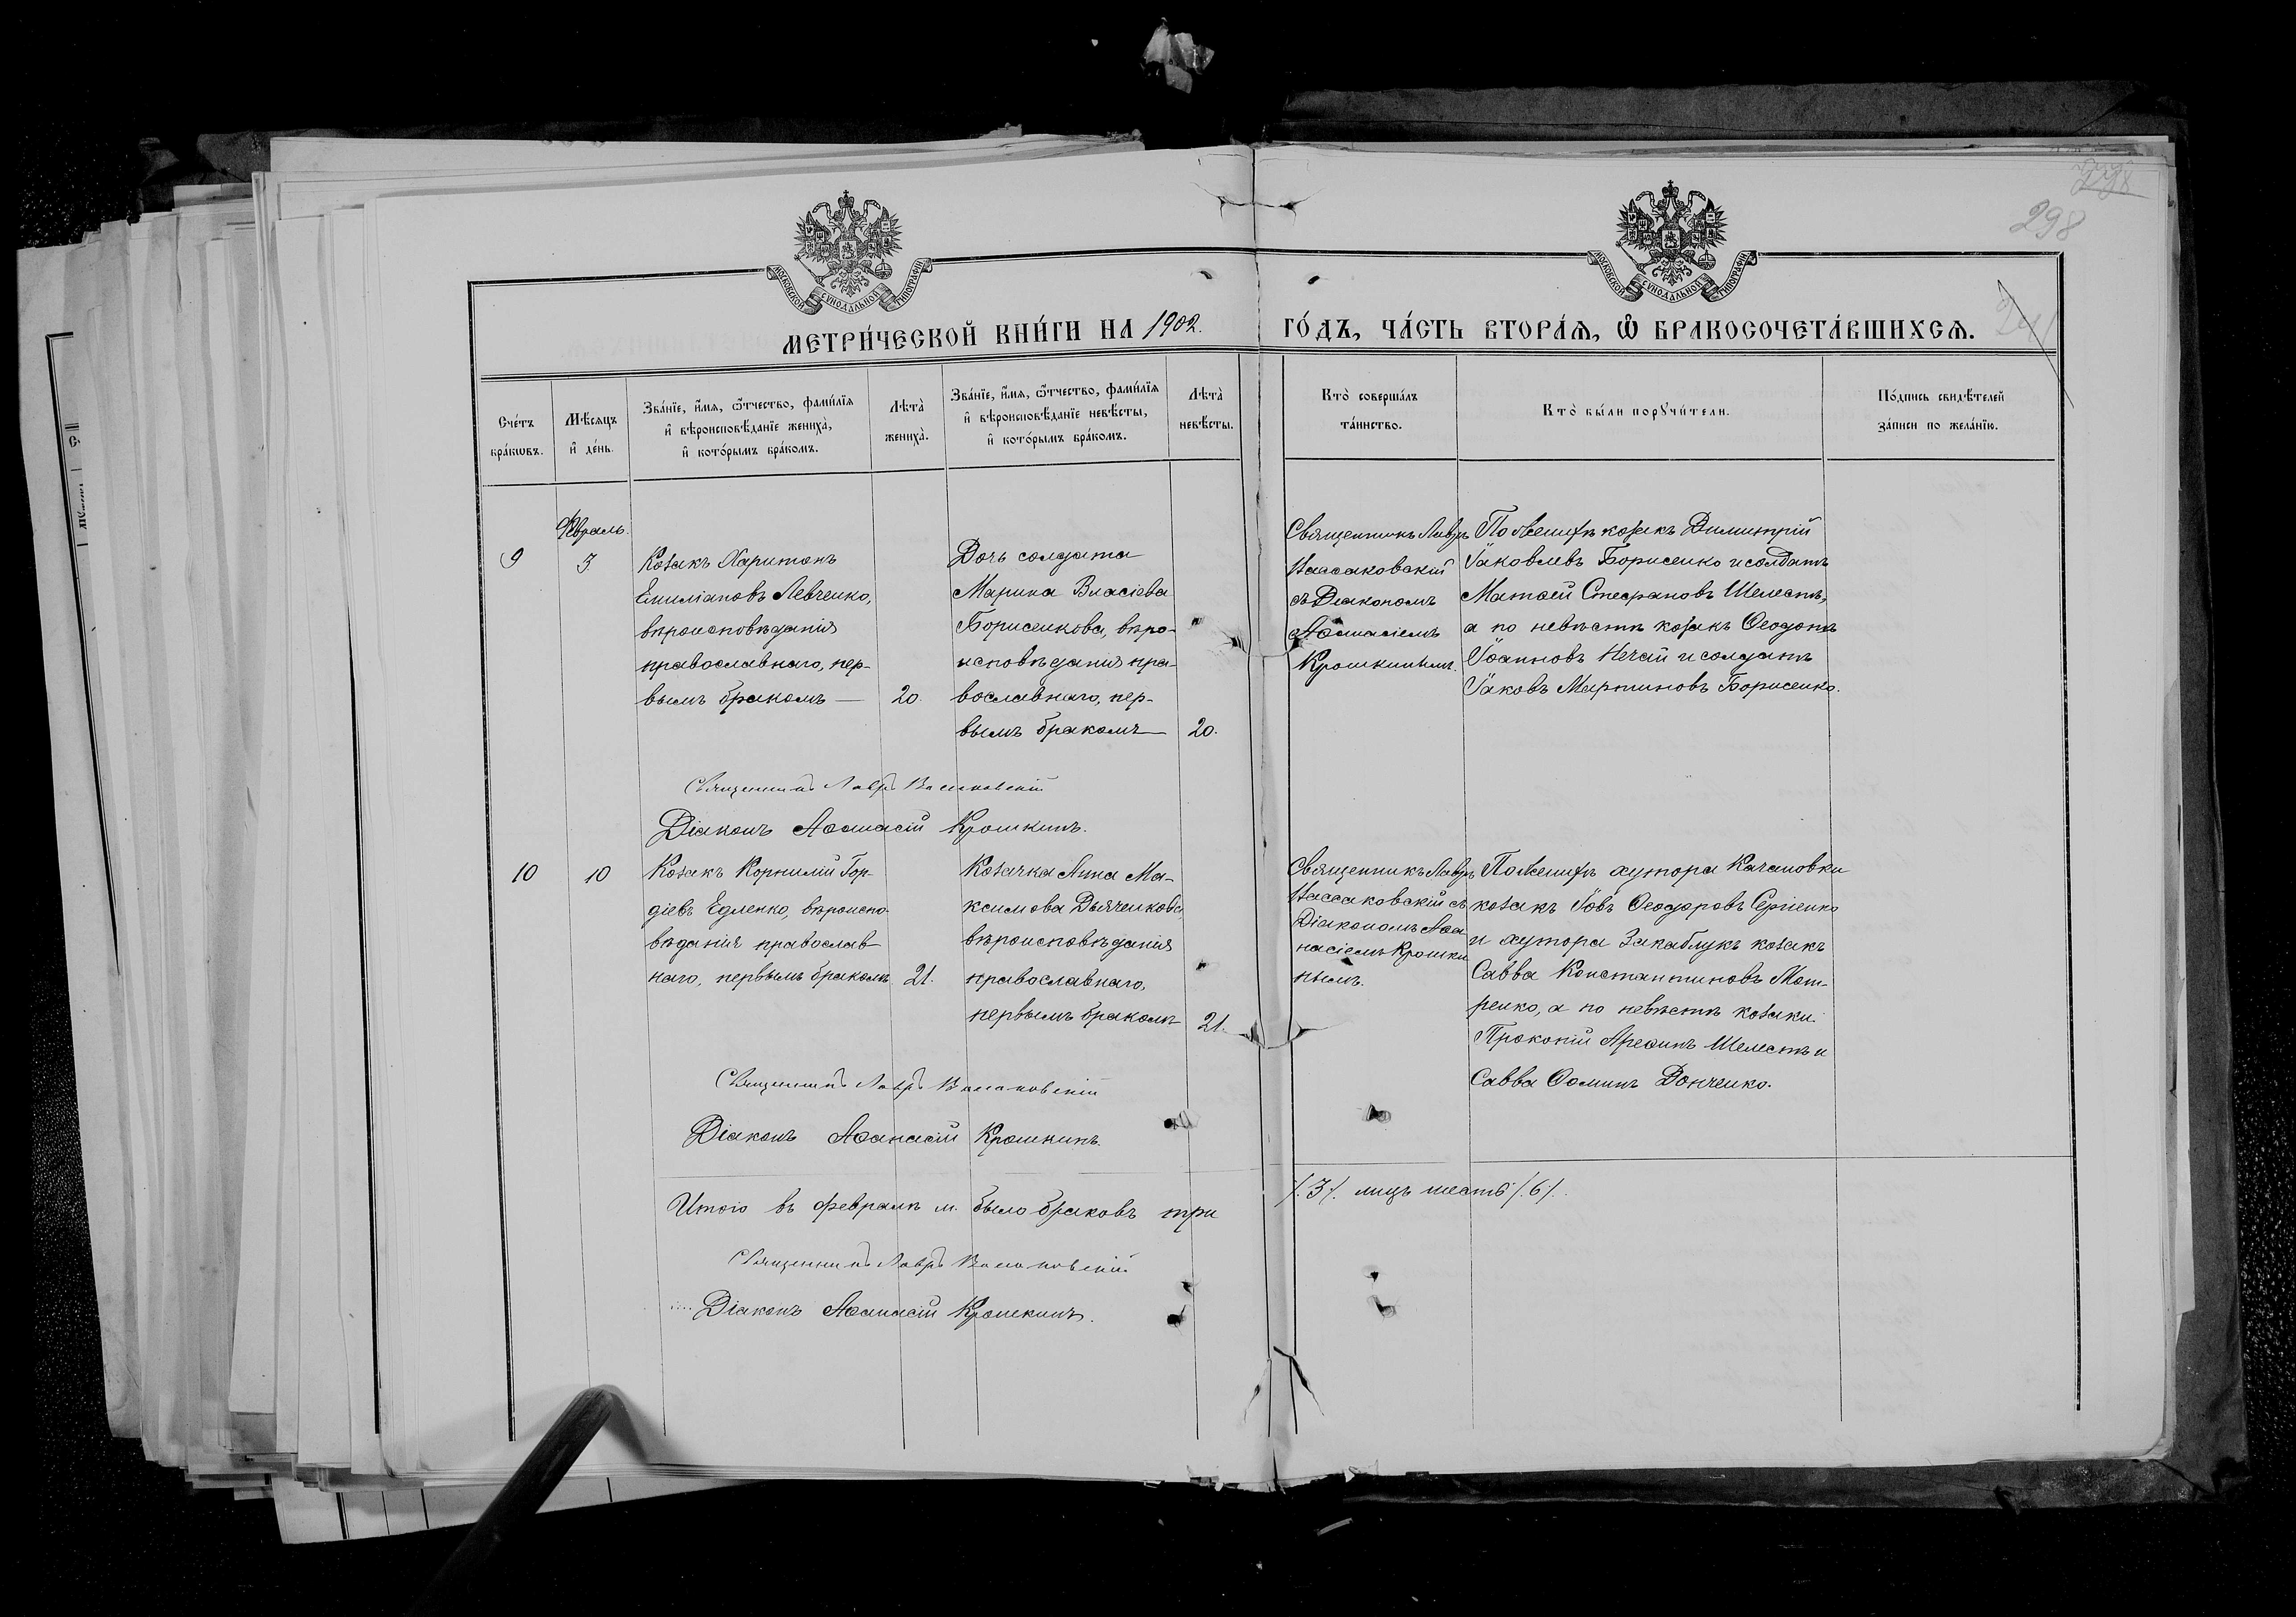 298
298
МОСКОВСКОЙ СѴНОДАЛЬНОЙ ТИПОГРАФІИ
МОСКОВСКОЙ СѴНОДАЛЬНОЙ ТИПОГРАФІИ
МЕТРИ́ЧЕСКОЙ КНИ́ГИ НА 1902.
ГО́ДЪ, ЧА́СТЬ ВТОРА́Ѧ, Ѽ БРАКОСОЧЕТА́ВШИХСѦ.
Сче́тъ
бра́кωвъ.
Мѣ́сяцъ
и҆ де́нь.
Зва́нїе, и҆́мѧ, ѻ҆́тчество, фами́лїѧ
и҆ вѣроисповѣ́данїе жениха̀,
и҆ кото́рымъ бра́комъ.
Лѣта̀
жениха̀.
Зва́нїе, и҆́мѧ, ѻ҆́тчество, фами́лїѧ
и҆ вѣроисповѣ́данїе невѣ́сты,
и҆ кото́рымъ бра́комъ.
Лѣта̀
невѣ́сты.
Кто̀ соверша́лъ
та́инство.
Кто̀ бы́ли порꙋчи́тели.
По́дпись свидѣ́телей
за́писи по жела́нїю.
Февраль.
9
3
Козакъ Харитонъ
Емиліановъ Левченко,
вѣроисповѣданія
православнаго, пер-
вымъ бракомъ —
20.
Дочь солдата
Марина Власіева
Борисенкова, вѣро-
исповѣданія пра-
вославнаго, пер-
вымъ бракомъ —
20.
Священникъ Лавръ
съ Діакономъ
Аѳанасіемъ
Крошкинымъ.
По женихѣ козакъ Димитрій
Іаковлевъ Борисенко и солдатъ
Матѳей Стефановъ Шелестъ,
а по невѣстѣ козакъ Ѳеодотъ
Іоанновъ Нечай и солдатъ
Іаковъ Мартиновъ Борисенко.
Священникъ Лавръ
Діаконъ Аѳанасій Крошкинъ.
10
10
Козакъ Корнилій Гор-
діевъ Едленко, вѣроиспо-
вѣданія православ-
наго, первымъ бракомъ
21.
Козачка Анна Ма-
ксимова Дьяченкова,
вѣроисповѣданія
православнаго,
первымъ бракомъ
21.
Священникъ Лавръ
съ
Діакономъ Аѳа-
насіемъ Крошки-
нымъ.
По женихѣ хутора Качановки
козакъ Іовъ Ѳеодоровъ Сергіенко
и хутора Закаблукъ козакъ
Савва Константиновъ Мот-
ренко, а по невѣстѣ козаки:
Прокопій Ареѳинъ Шелестъ и
Савва Ѳоминъ Донченко.
Священникъ Лавръ
Діаконъ Аѳанасій Крошкинъ.
Итого въ февралѣ м. было браковъ три /.3/. лицъ шесть /.6/.
Священникъ Лавръ
Діаконъ Аѳанасій Крошкинъ.